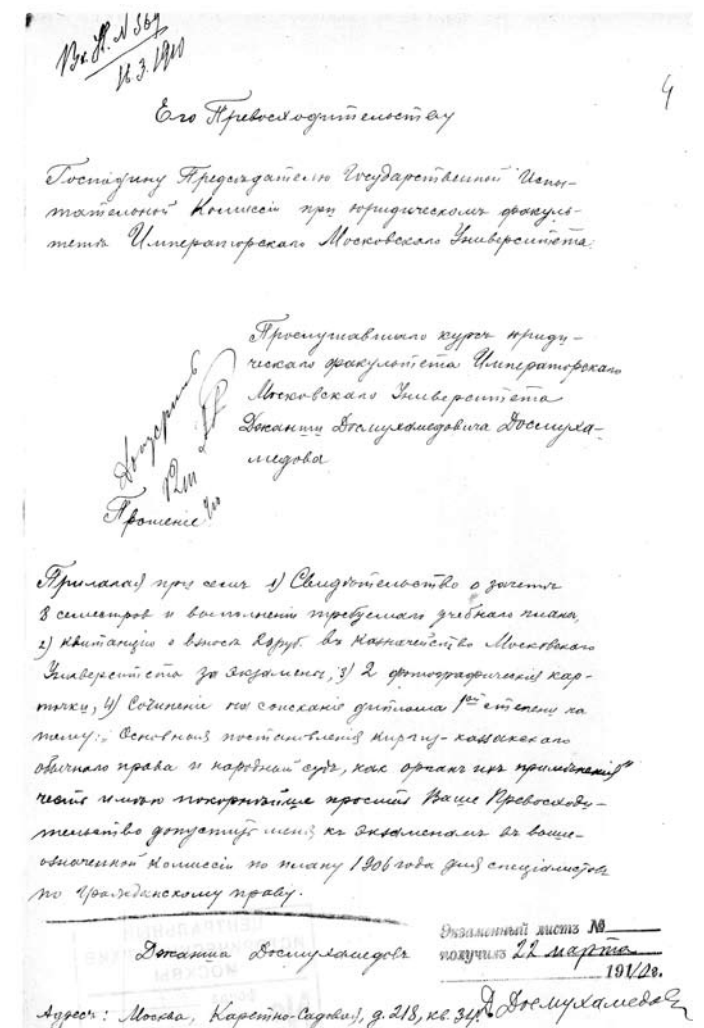 Вх. № 569
16.3.1910
4
Его Превосходительству
Господину Председателю Государственной Испы-
тательной Комиссіи при юридическомъ факуль-
тетѣ Императорскаго Московскаго Университета.
Прослушавшаго курсъ юриди-
ческаго факультета Императорскаго
Московскаго Университета
Джанши Досмухамедовича Досмуха-
медова
Допустить
Прошеніе
Прилагая при семъ 1) Свидѣтельство о зачетѣ
8 семестровъ и выполненіи требуемаго учебнаго плана,
2) квитанцію о взносѣ руб. въ Казначейство Московскаго
Университета за экзамены, 3) 2 фотографическія кар-
точки, 4) Сочиненіе на соисканіе диплома 1ой степени на
тему: „Основныя постановленія киргиз-кайсакскаго
обычнаго права и народный судъ, какъ органъ ихъ примѣненія"
честь имѣю покорнѣйше просить Ваше Превосходи-
тельство допустить меня къ экзаменамъ въ выше-
означенной Комиссіи по плану 1906 года для спеціалистовъ
по гражданскому праву.
Джанша Досмухамедовъ
Экзаменный листъ №
получилъ 22 марта
1910г.
Д Досмухамедовъ
Адресъ: Москва, Каретно-Садовая, д. 218, кв. 34.
ЦЕНТРАЛЬНЫЙ
ИСТОРИЧЕСКИЙ АРХИВ
МОСКВЫ